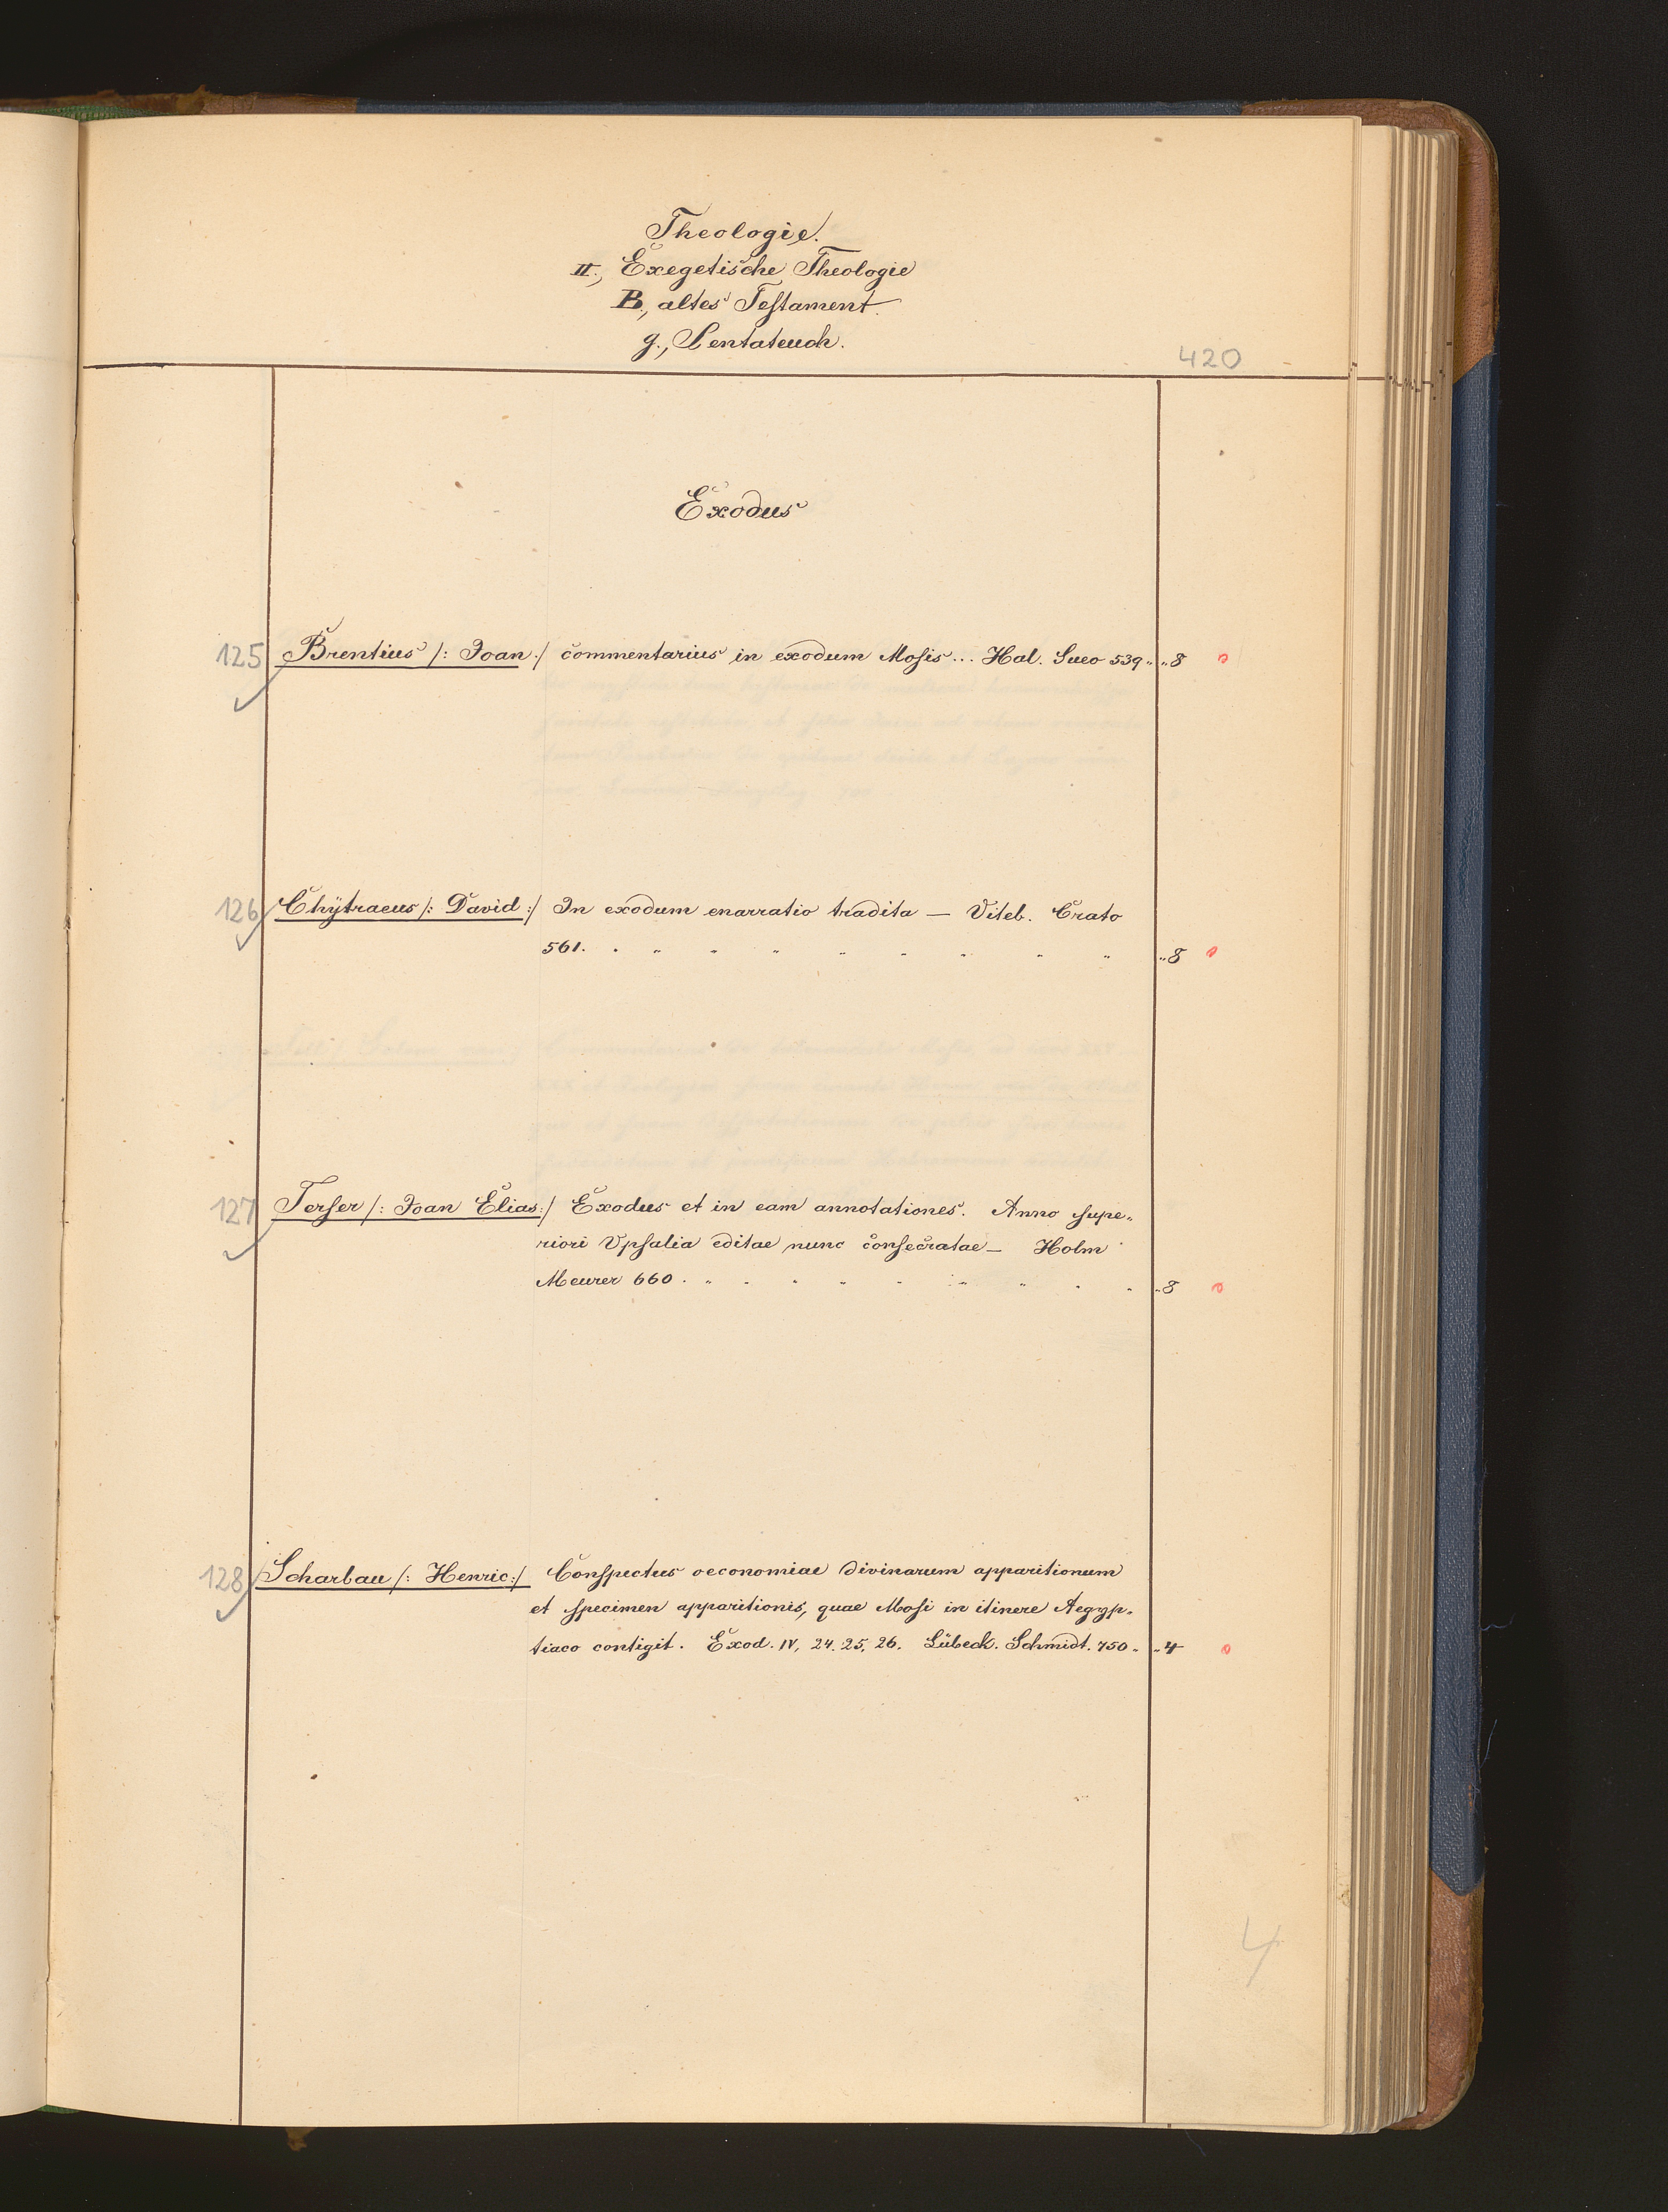 Theologie.
II., Exegetische Theologie
B., altes Testament.
g., Pentateuch.
420
Exodus
125 Brentius /: Joan :/ commentarius in exodum Mosis... Hal. Suev 539 „ „8
126 Chÿtraeus /: David :/ In exodum enarratio tradita — Viteb. Crato
561. . „ „ „ „ „ „ „ „ „8
127 Terser /: Joan Elias :/ Exodus et in eam annotationes. Anno supe„
riori Upsalia editae nunc consecratae — Holm
Meurer 660 . „ „ „ „ „ „ „ „ „ „8
128 Scharbau /: Henric :/ Conspectus oeconomiae divinarum apparitionum
et specimen apparitionis, quae Mosi in itinere Aegyp„
tiaco contigit. Exod. IV, 24. 25, 26. Lübeck. Schmidt. 750 „ „4
4